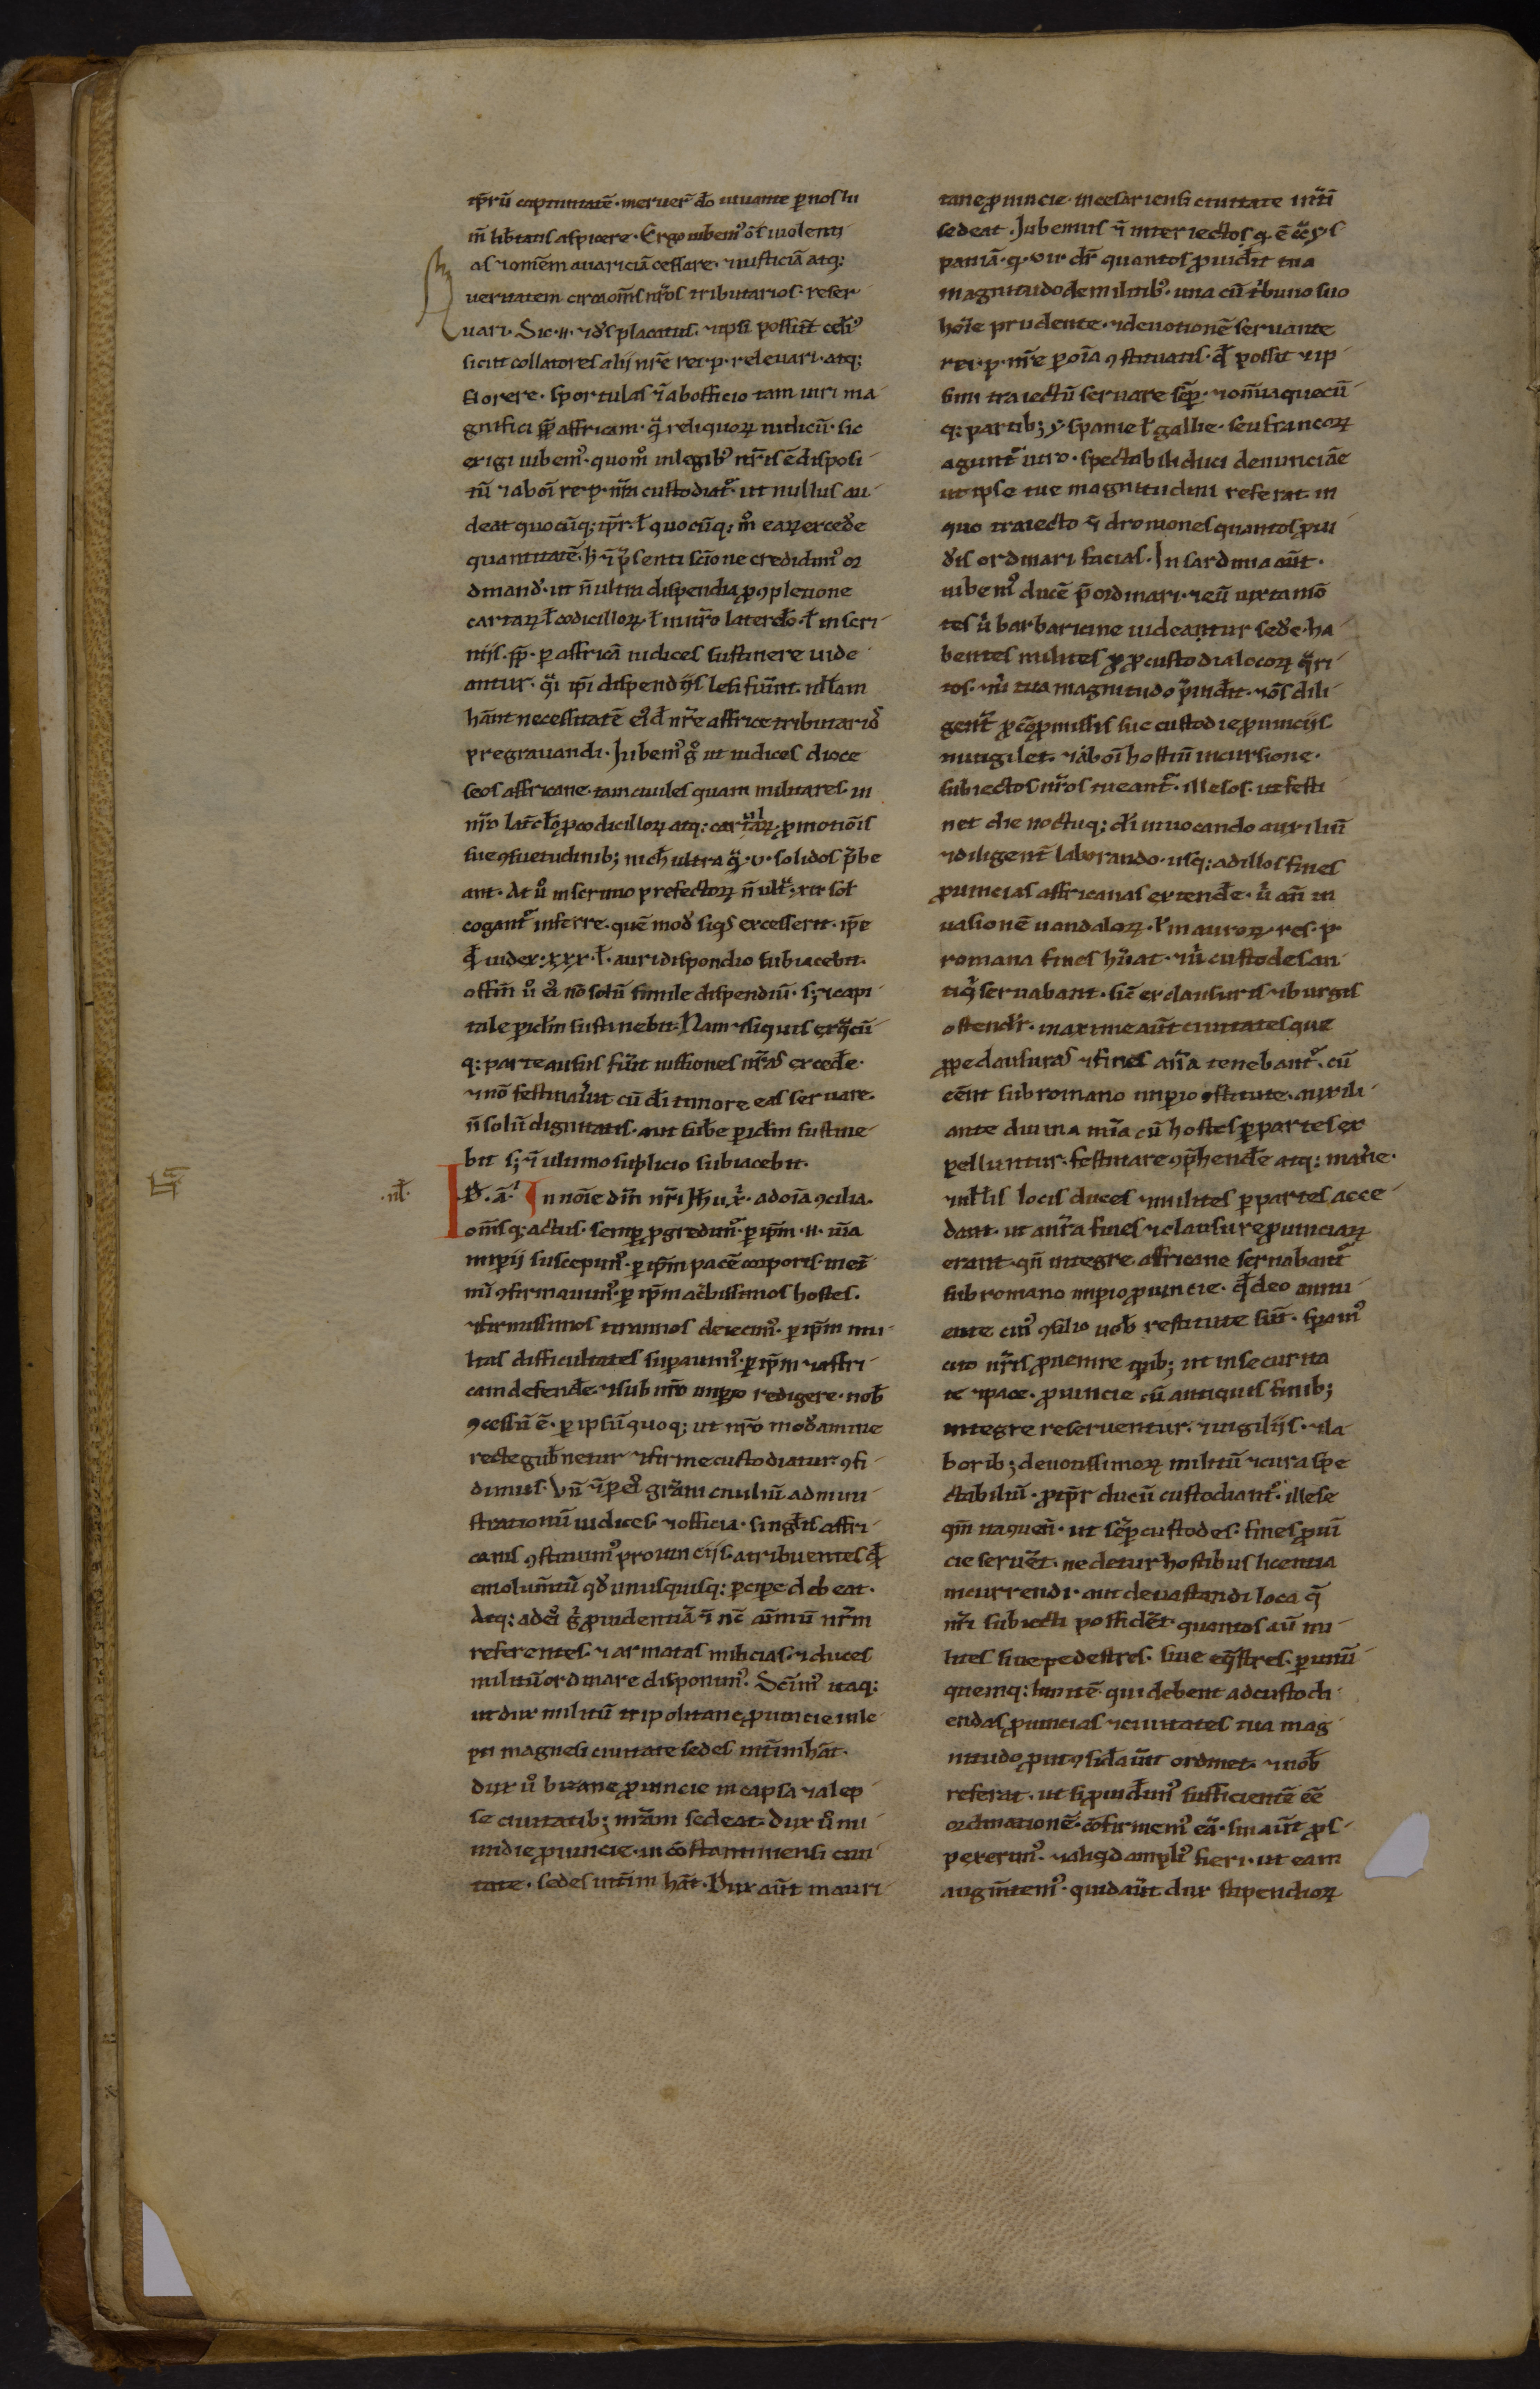 tp̄rū captiuitatē · meruer̄ do uiuante per nos lu
m̄ lib̄tatis aspicere · Ergo iubem᾿ ōs uiolenti
as ⁊ omēm auariciā cessare · ⁊ iusticiā atq;
ueritatem circa om̄s nr̄os tributarios · reser
uari · Sic · n · ⁊ d̄s placatus · ⁊ ipsi possūt celi᾿
sicut collatores alij nr̄e rei · p · releuari · atq;
florere · sportulas ⁊ ab officio tam uiri ma
gnifici pp̄ affricam · q̄ reliquoꝝ iudicū · sic
exigi iubem᾿ · quom̊ in legib᾿ nr̄is ē disposi
tū ⁊ ab oī re · p · nr̄a custodiat᾿ · ut nullus au
deat quocūq; tp̄r · ł quocūq; m̊ eaꝝ excede
quantitatē · h̄ ī p̄senti scīone credidim᾿ or
dinand᾿ · ut n̄ ultra dispendia ꝓ ꝯpletione
cartaꝝ · ł codicilloꝝ · ł in nr̄o laterclo · ł in scri
nijs · pp̄ · ꝑ affricā iudices sustinere uide
antur · q̄i ip̄i dispendijs lesi fūint · nłłam
hānt necessitatē ei᾿d nr̄e affrice tributarios
pregrauandi · Jubem᾿ g̊ ut iudices dioce
seos affricane · tam ciuiles quam militares · in
nr̄o lat̄clo ꝓ codicilloꝝ atq; cartaꝝ ꝓmotiōis
sue ꝯsuetudinib; nich̄ ultra q̄ · v · solidos p̄be
ant · At ů in scrinio prefectoꝝ n̄ ult̄ · xii soł
cogant᾿ inferre · quē mod᾿ siq̄s excesserit · ip̄e
q̄ iudex · xxx · ł · auri dispendio subiacebit ·
offim̄ ů ei᾿ nō solū simile dispendiū · s; ⁊ capi
tale ꝑiclm̄ sustinebit · Nam ⁊ siquis ex q̄cū
q; parte ausus fūit iussiones nr̄as excede ·
⁊ nō festinarit cū di timore eas seruare ·
n̄ solū dignitatis · aut subē ꝑiclm̄ sustine
bit s; ī ultimo suplicio subiacebit ·
· nł · D̄ · ā · In noīe dn̄i nr̄i Jh̄u x̄ · ad oīa ꝯcilia ·
om̄sq; actus · semꝑ ꝓgredim᾿ · ꝑ ip̄m · n · iura
imꝑij suscepim᾿ · ꝑ ip̄m pacē corporis · inet̄
nū ꝯfirmauim᾿ · ꝑ ip̄m ac̄bissimos hostes ·
⁊ firmissimos tirannos deiecim᾿ · ꝑ ip̄m mu
ltas difficultates suꝑauim᾿ · ꝑ ip̄m ⁊ affri
cam defende · ⁊ sub nr̄o imꝑio redigere · nob̄
ꝯcessū ē · ꝑ ipsū quoq; ut nr̄o mod᾿amine
recte gub̄netur ⁊ firme custodiatur · ꝯfi
dimus · Vn̄ ī ꝑ ei᾿ gr̄am ciuiliū admini
strationū iudices · ⁊ officia · singlis affri
canis ꝯstituim᾿ prouincijs · atribuentes q̄
emolum̄tū q̄d unusquisq; ꝑcipe debeat ·
Atq; ad ei᾿ g̊ ꝓuidentiā ī nc̄ aīmū nr̄m
referentes · ⁊ armatas milicias · ⁊ duces
militū ordinare disponim᾿ · Scīm᾿ itaq;
ut dux militū tripolitane ꝓuincie in le
pti magnesi ciuitate sedes int̄im hāt ·
dux ů bizane ꝓuincie in capsa ⁊ alep
se ciuitatib; int̄im sedeat · dux ů nu
midie ꝓuincie · in cōstantiniensi ciui
tate · sedes int̄im hāt · Dux aūt mauri
tane ꝓuincie · in cesariensi ciuitate int̄i
sedeat · Jubemus ī inter iectos q̄ ē c̄ ys
paniā · q · vir dr̄ quantos ꝓuidit tua
magnitudo de militib᾿ · una cū t̄buno suo
hoīe prudente · ⁊ deuotionē seruante
rei · p · nr̄e ꝑ oīa ꝯstituatis · q̄ possit ⁊ ip
sum traiectū seruare sēꝑ · ⁊ om̄ia quecū
q; partib; yspanie ł gallie · seu francoꝝ
agunt᾿ uiro · spectabili duci denunciāe
ut ipse tue magnitudini referat · in
quo traiecto ī dromones quantos ꝓui
d᾿is ordinari facias · In sardinia aūt ·
iubem᾿ ducē p̄ordinari · ⁊ eū iuxta mō
tes u᾿ barbaricine uideantur sed᾿e · ha
bentes milites ꝓ ꝓ custodia locoꝝ q̄ri
tos · n̄i tua magnitudo p̄uid̄it · ⁊ ōs dili
gent̄ ꝓ cōꝓmissis sue custodie ꝓuincijs
inuigilet · ⁊ ab oī hostiū incursione ·
subiectos nr̄os tueant᾿ · illesos · ut festi
net die noctuq; d᾿i inuocando auxiliū
⁊ diligent̄ laborando · usq; ad illos fines
ꝓuincias affricanas extend᾿e · u᾿ an̄ in
uasionē uandaloꝝ · ł mauroꝝ · res · p ·
romana fines hūat · ⁊ u᾿ custodes an
tiq̄ seruabant · sic̄ ex clausuris ⁊ burgis
ostendit̄ · maxime aūt ciuitates que
ꝓpe clausuras ⁊ fines ant̄a tenebant᾿ · cū
cēnt sub romano imꝑio ꝯstitute · auxili
ante diuina mīa cū hostes ꝑ partes ex
pelluntur · festinare ꝯp̄hendē atq; mat̄ie ·
⁊ nłłis locis duces ⁊ milites ꝑ partes acce
dant · ut ant̄a fines ⁊ clausure ꝓuinciaꝝ
erant · qn̄ integre affricane seruabant᾿
sub romano imꝑio ꝓuincie · q̄ deo annu
ente cui᾿ ꝯsilio uob̄ restitute sūt · speram᾿
cito nr̄is ꝓuenire tp̄ib; ut in securita
te ⁊ pace · ꝓuincie cū antiquis finib;
integre reseruentur · ⁊ uigilijs · ⁊ la
borib; deuotissimoꝝ militū ⁊ cura spe
ctabiliū · ꝓ tp̄r ducū custodiant᾿ · illese
qm̄ ita ꝯuen̄ · ut sēꝑ custodes · fines ꝓuī
cie seruēt · ne detur hostibus licentia
incurrendi · aut deuastandi loca q̄
nr̄i subiecti possidēt · quantos aū mi
lites siue pedestres · siue eq̄stres · ꝑ unū
quemq; limitē · qui debent ad custodi
endas ꝓuincias ⁊ ciuitates tua mag
nitudo ꝓut ꝯsid̄auit ordinet · ⁊ nob̄
referat · ut si ꝓuidim᾿ sufficientē eē
ordinationē · cōfirmem᾿ eā · sin aūt ꝓs
pexerim᾿ · ⁊ aliq̄d ampli᾿ fieri · ut eam
augm̄tem᾿ · quid aūt dux stipendioꝝ